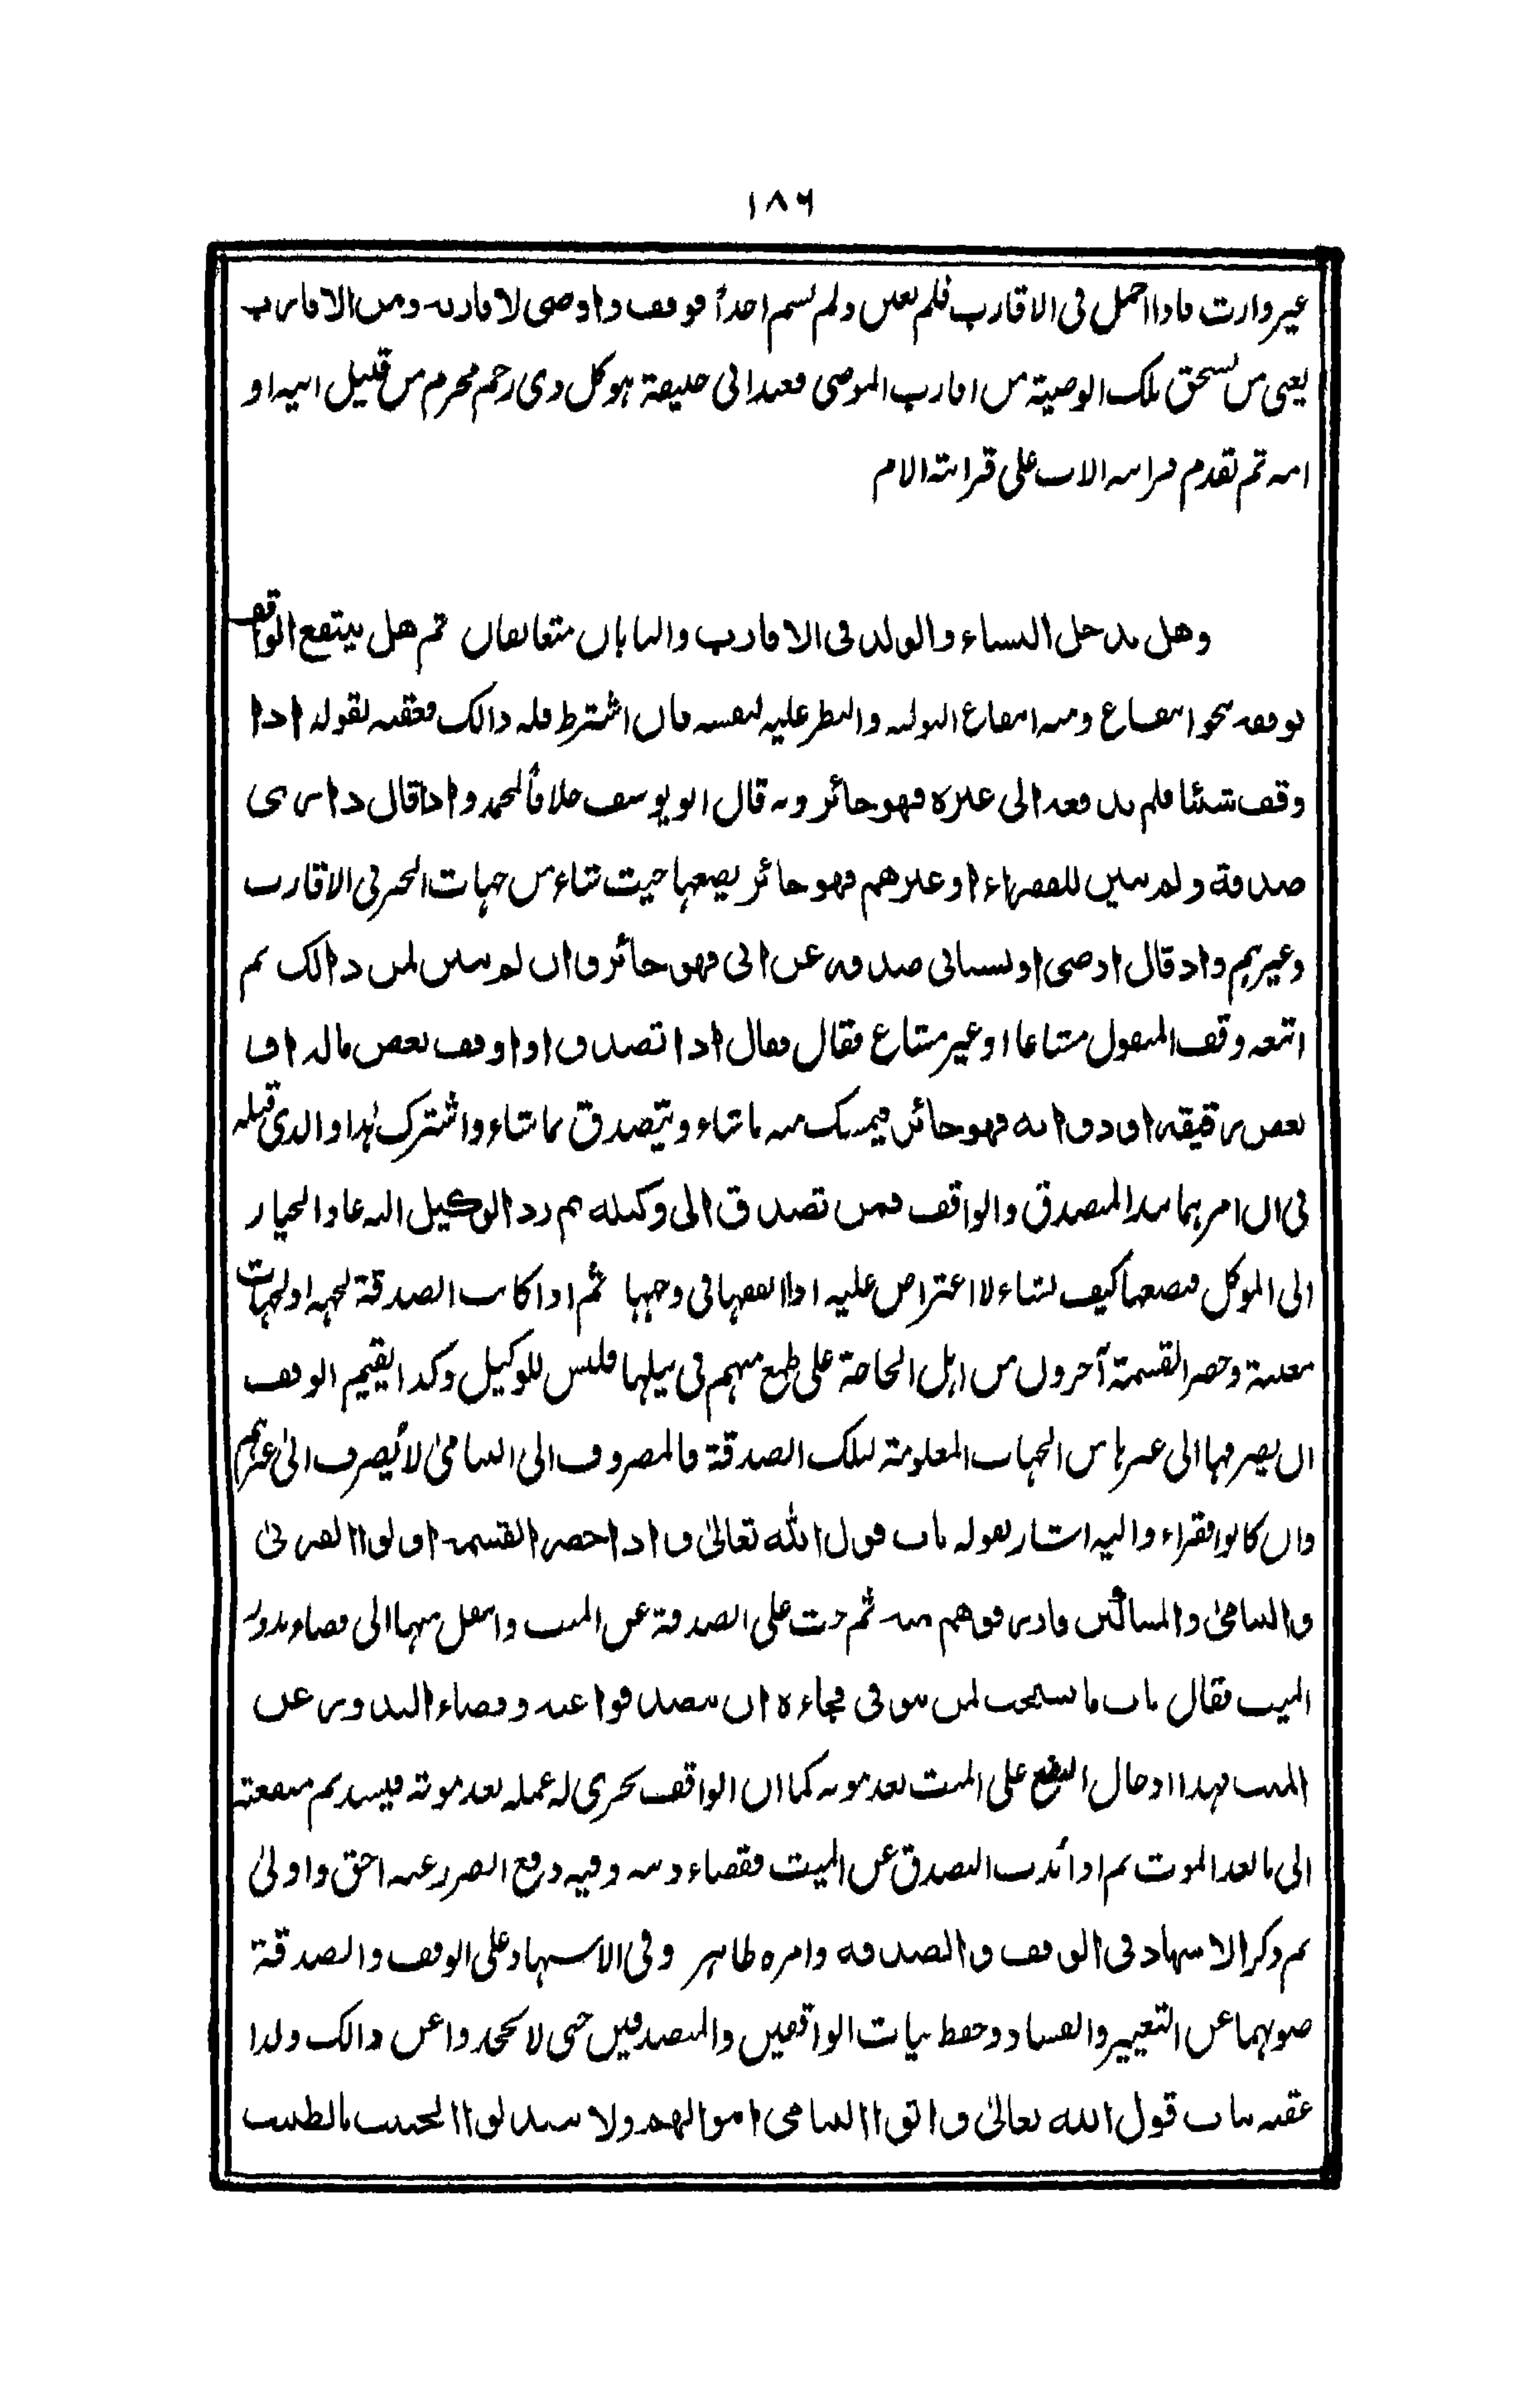 ١٨٦
غير وارث فاذا اجمل فى الاقارب فلم يعين ولم يسم احداً فوقف واوصى لاقاربه ومن الاقارب
يعنى من يستحق تلك الوصية من اقارب الموصى فعند ابى حنيفة هو كل ذى رحم محرم من قبيل ابيه او
امه ثم تقدم قرابته الاب على قرابته الام
وهل يدخل النساء والولد فى الاقارب والبابان متعانقان ثم هل ينتفع الواقف
بوقفه نحو انتفاع ومنه انتفاع التولية والنظر عليه لنفسه فان اشترط فله ذالك فعقبه بقوله اذا
وقف شئنا فلم يدفعه الى غيره فهو جائز وبه قال ابو يوسف خلافاً لمحمد واذا قال دارى
صدقة ولم يبين للفقراء او غيرهم فهو جائز يضعها حيث شاء من جهات الخير فى الاقارب
وغيرهم واذ قال ارضى او بستانى صدقة عن امى فهو جائز وان لم يبين لمن ذالك ثم
اتبعه وقف المنقول مشاعا او غير مشاع فقال فقال اذا تصدق او اوقف بعض ماله او
بعض رقيقه او دوابه فهو جائز فيمسك منه ما شاء ويتصدق بما شاء واشترك هذا والذى قبله
فى ان امرهما بيد المتصدق والواقف فمن تصدق الى وكيله ثم رد الوكيل اليه عاد الخيار
الى الموكل فيضعها كيف يشاء لا اعتراض عليه اذا انفقها فى وجهها ثم اذا كانت الصدقة لجهة او لجهات
معينة وحضر القسمة آخرون من اهل الحاجة على طمع منهم فى نيلها فليس للوكيل وكذا لقيم الوقف
ان يصرفها الى غيرها من الجهات المعلومة لتلك الصدقة فالمصروف الى اليتامىٰ لا يُصرف الىٰ غيرهم
وان كانوا فقراء واليه اشار بقوله باب قول الله تعالىٰ و اذا حضر القسمة اولوا القربىٰ
واليتامىٰ والمساكين فارزقوهم منه ثم حث على الصدقة عن الميت وانتقل منها الى قضاء نذور
الميت فقال باب ما يستحب لمن توفى فجاءة ان يتصدقوا عنه وقضاء النذور عن
الميت فهذا ادخال النفع على الميت بعد موته كما ان الواقف يجرى له عمله بعد موته فيستديم منفعته
الى ما بعد الموت ثم اذا نُدب التصدق عن الميت فقضاء دينه وفيه دفع الضرر عنه احق واولىٰ
ثم ذكر الاشهاد فى الوقف والصدقه وامره ظاهر وفى الاشهاد على الوقف والصدقة
صونهما عن التغيير والفساد وحفظ نيات الواقفين والمتصدقين حتى لا يحيدوا عن ذالك ولذا
عقبه بباب قول الله تعالىٰ واتوا اليتامى اموالهم ولا تتبدلوا الخبيث بالطيب